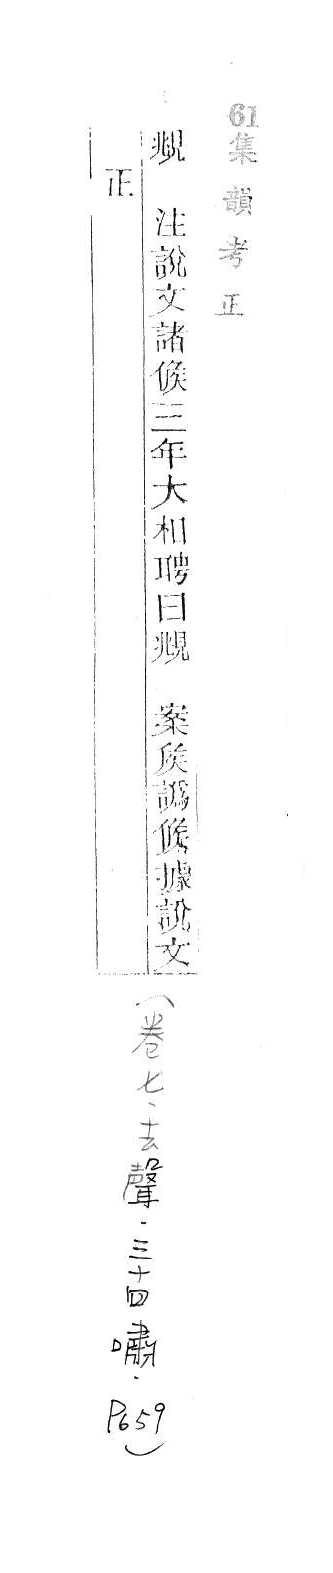 61集韻考正
覜 注說文諸候三年大相聘曰覜 案矦譌候據說文
正
（卷七．去聲．三十四嘯．P659）